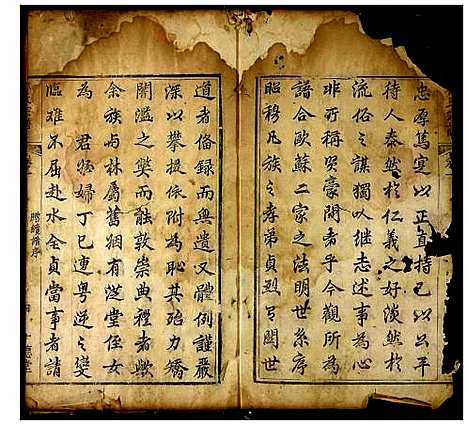 忠厚篤實以正直持己以公平
待人泰然於仁義之好淡然於
流俗之謀獨以继志述事為心
非所稱賢豪間者乎今觀所為
譜合歐蘇二家之法明世系序
昭穆凡族之孝弟貞烈有関世
道者俻録而無遺又體例謹嚴
深以攀援依附為恥其殆力矯
闇濫之獘而融敦崇典禮者歟
余族与林屬舊姻有芝堂侄女
為君姪婦丁巳遭粤逆之變
臨难不屈赴水全貞當事者請
序
德堂